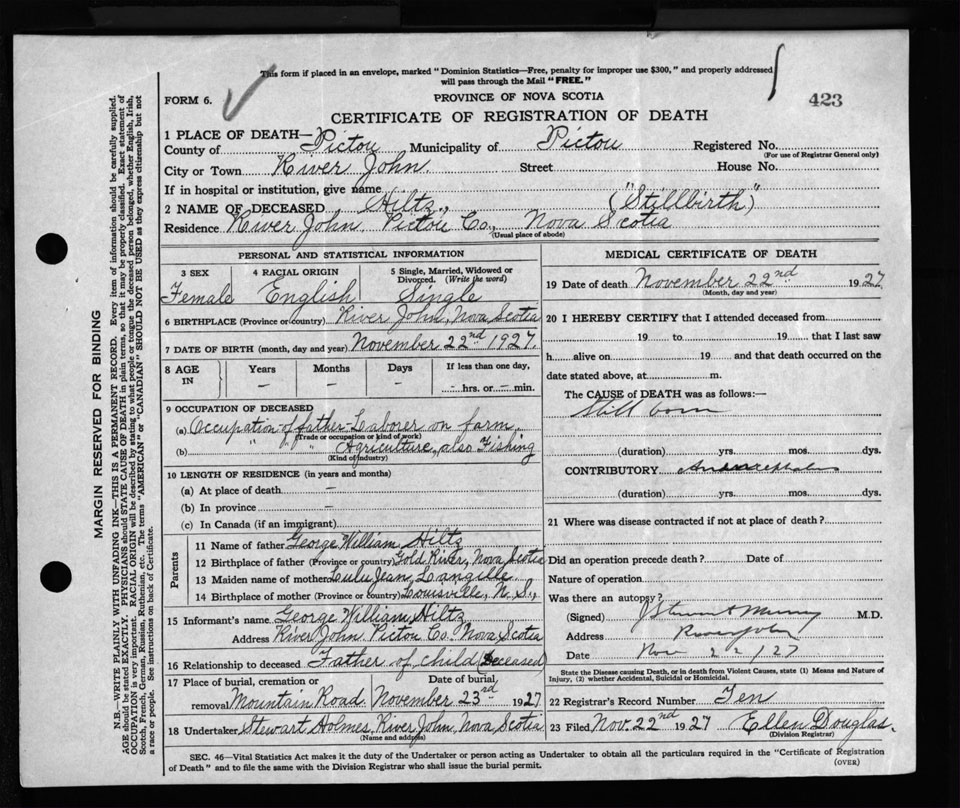 This form if placed in an envelope, marked "Dominion Statistics—Free, penalty for improper use $300," and properly addressed
will pass through the Mail "FREE."
FORM 6.
PROVINCE OF NOVA SCOTIA
423
CERTIFICATE OF REGISTRATION OF DEATH
1 PLACE OF DEATH—
County of Pictou Municipality of Pictou Registered No.
(For use of Registrar General only)
City or Town River John. Street House No.
If in hospital or institution, give name
2 NAME OF DECEASED Hiltz, ("Stillbirth")
Residence River John Pictou Co., Nova Scotia
(Usual place of abode)
PERSONAL AND STATISTICAL INFORMATION
3 SEX 4 RACIAL ORIGIN 5 Single, Married, Widowed or
Divorced. (Write the word)
Female English Single
6 BIRTHPLACE (Province or country) River John, Nova Scotia
7 DATE OF BIRTH (month, day and year) November 22nd 1927.
8 AGE IN Years Months Days If less than one day,
— — — - hrs. or - min.
9 OCCUPATION OF DECEASED
(a) Occupation of father - Laborer on farm,
(Trade or occupation or kind of work)
(b) " " " Agriculture, also Fishing
(Kind of industry)
10 LENGTH OF RESIDENCE (in years and months)
(a) At place of death —
(b) In province —
(c) In Canada (if an immigrant)
Parents
11 Name of father George William Hiltz
12 Birthplace of father (Province or country) Gold River, Nova Scotia
13 Maiden name of mother Lulu Jean Langille
14 Birthplace of mother (Province or country) Louisville, N. S.,
15 Informant's name George William Hiltz
Address River John Pictou Co. Nova Scotia
16 Relationship to deceased Father of child (Deceased)
17 Place of burial, cremation or Date of burial,
removal Mountain Road November 23rd 1927
18 Undertaker Stewart Holmes, River John, Nova Scotia
(Name and address)
MEDICAL CERTIFICATE OF DEATH
19 Date of death November 22nd 1927
(Month, day and year)
20 I HEREBY CERTIFY that I attended deceased from
19 to 19 that I last saw
h alive on 19 and that death occurred on the
date stated above, at m.
The CAUSE of DEATH was as follows:—
Still born
(duration) yrs. mos. dys.
CONTRIBUTORY
(duration) yrs. mos. dys.
21 Where was disease contracted if not at place of death?
Did an operation precede death? Date of
Nature of operation
Was there an autopsy?
(Signed) Murray M.D.
Address River John
Date Nov 22/27
State the Disease causing Death, or in death from Violent Causes, state (1) Means and Nature of
Injury, (2) whether Accidental, Suicidal or Homicidal.
22 Registrar's Record Number Ten
23 Filed Nov. 22nd 1927 Ellen Douglas.
(Division Registrar)
SEC. 46—Vital Statistics Act makes it the duty of the Undertaker or person acting as Undertaker to obtain all the particulars required in the "Certificate of Registration
of Death" and to file the same with the Division Registrar who shall issue the burial permit.
(OVER)
MARGIN RESERVED FOR BINDING
N.B.—WRITE PLAINLY WITH UNFADING INK—THIS IS A PERMANENT RECORD. Every item of information should be carefully supplied.
AGE should be stated EXACTLY. PHYSICIANS should STATE CAUSE OF DEATH in plain terms, so that it may be properly classified. Exact statement of
OCCUPATION is very important. RACIAL ORIGIN will be described by stating to what people or tongue the deceased person belonged, whether English, Irish,
Scotch, French, German, Russian, Ruthenian, etc. The terms "AMERICAN" or "CANADIAN" SHOULD NOT BE USED as they express citizenship but not
a race or people. See instructions on back of Certificate.